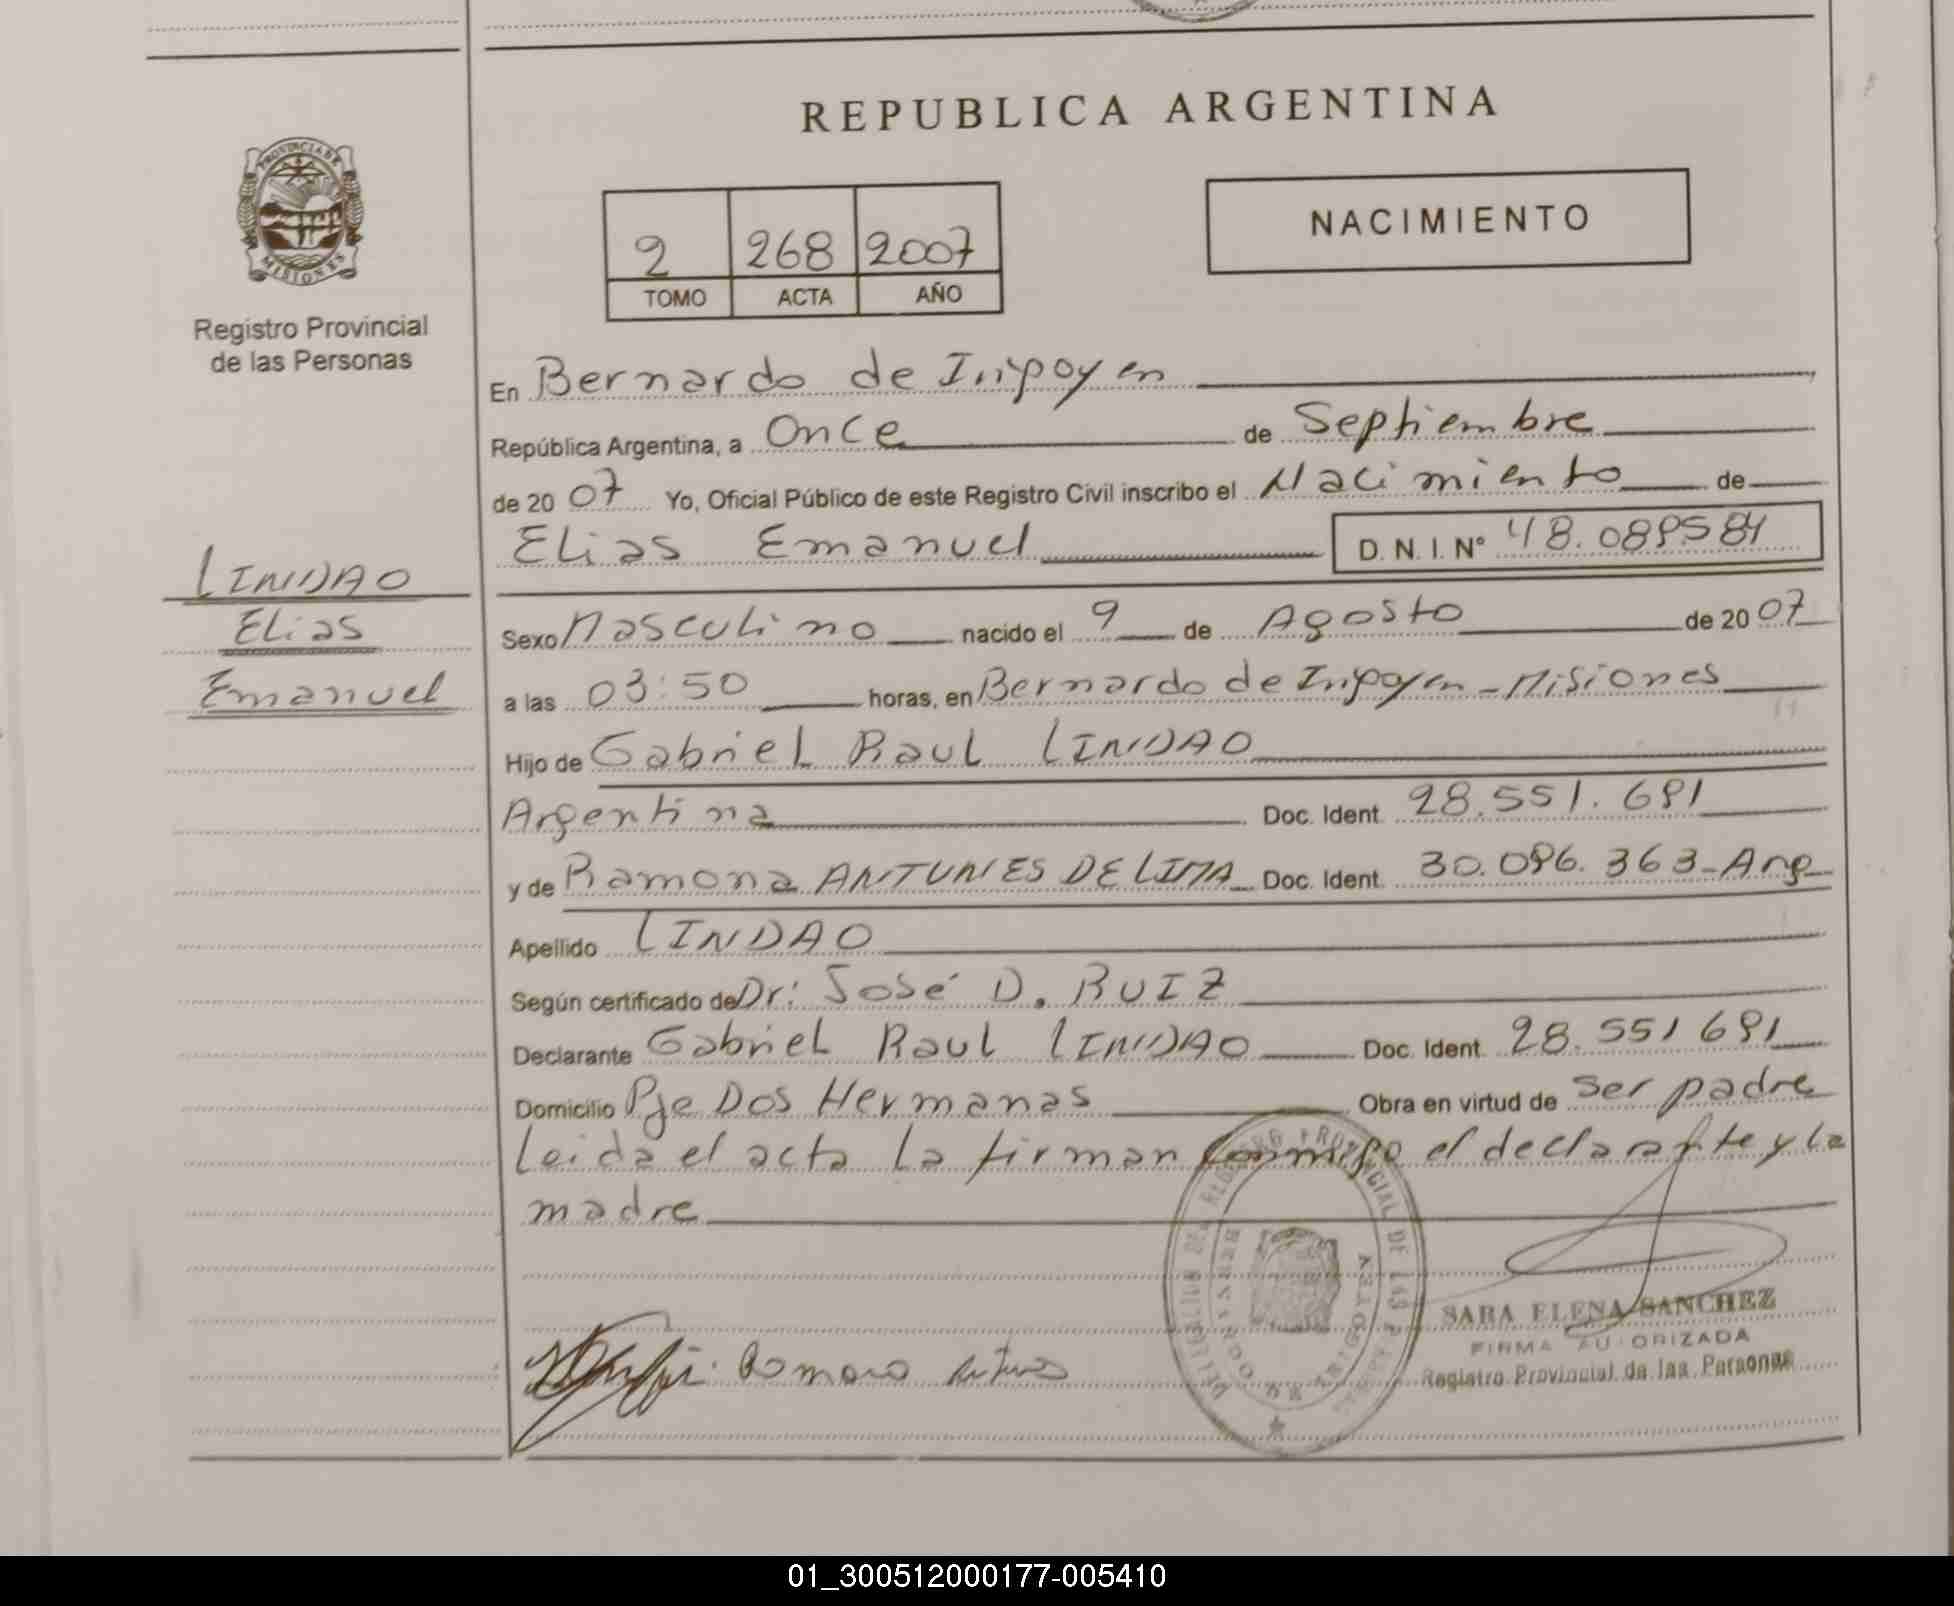 REPUBLICA ARGENTINA
PROVINCIA DE
MISIONES
Registro Provincial
de las Personas
2 268 2007
TOMO ACTA AÑO
NACIMIENTO
En Bernardo de Irigoyen
República Argentina, a Once de Septiembre
de 2007 Yo, Oficial Público de este Registro Civil inscribo el Nacimiento de
Elias Emanuel D. N. I. Nº 48.089584
LINDAO
Elias
Emanuel
Sexo Masculino nacido el 9 de Agosto de 2007
a las 03:50 horas, en Bernardo de Irigoyen - Misiones
Hijo de Gabriel Raul LINDAO
Argentina Doc. Ident. 28.551.691
y de Ramona ANTUNES DE LIMA Doc. Ident. 30.096.363 - Arg
Apellido LINDAO
Según certificado de Dr: José D. RUIZ
Declarante Gabriel Raul LINDAO Doc. Ident. 28.551691
Domicilio Pje Dos Hermanas Obra en virtud de ser padre
Leida el acta la firman conmigo el declarante y la
madre
SARA ELENA SANCHEZ
FIRMA AUTORIZADA
Registro Provincial de las Personas
01_300512000177-005410